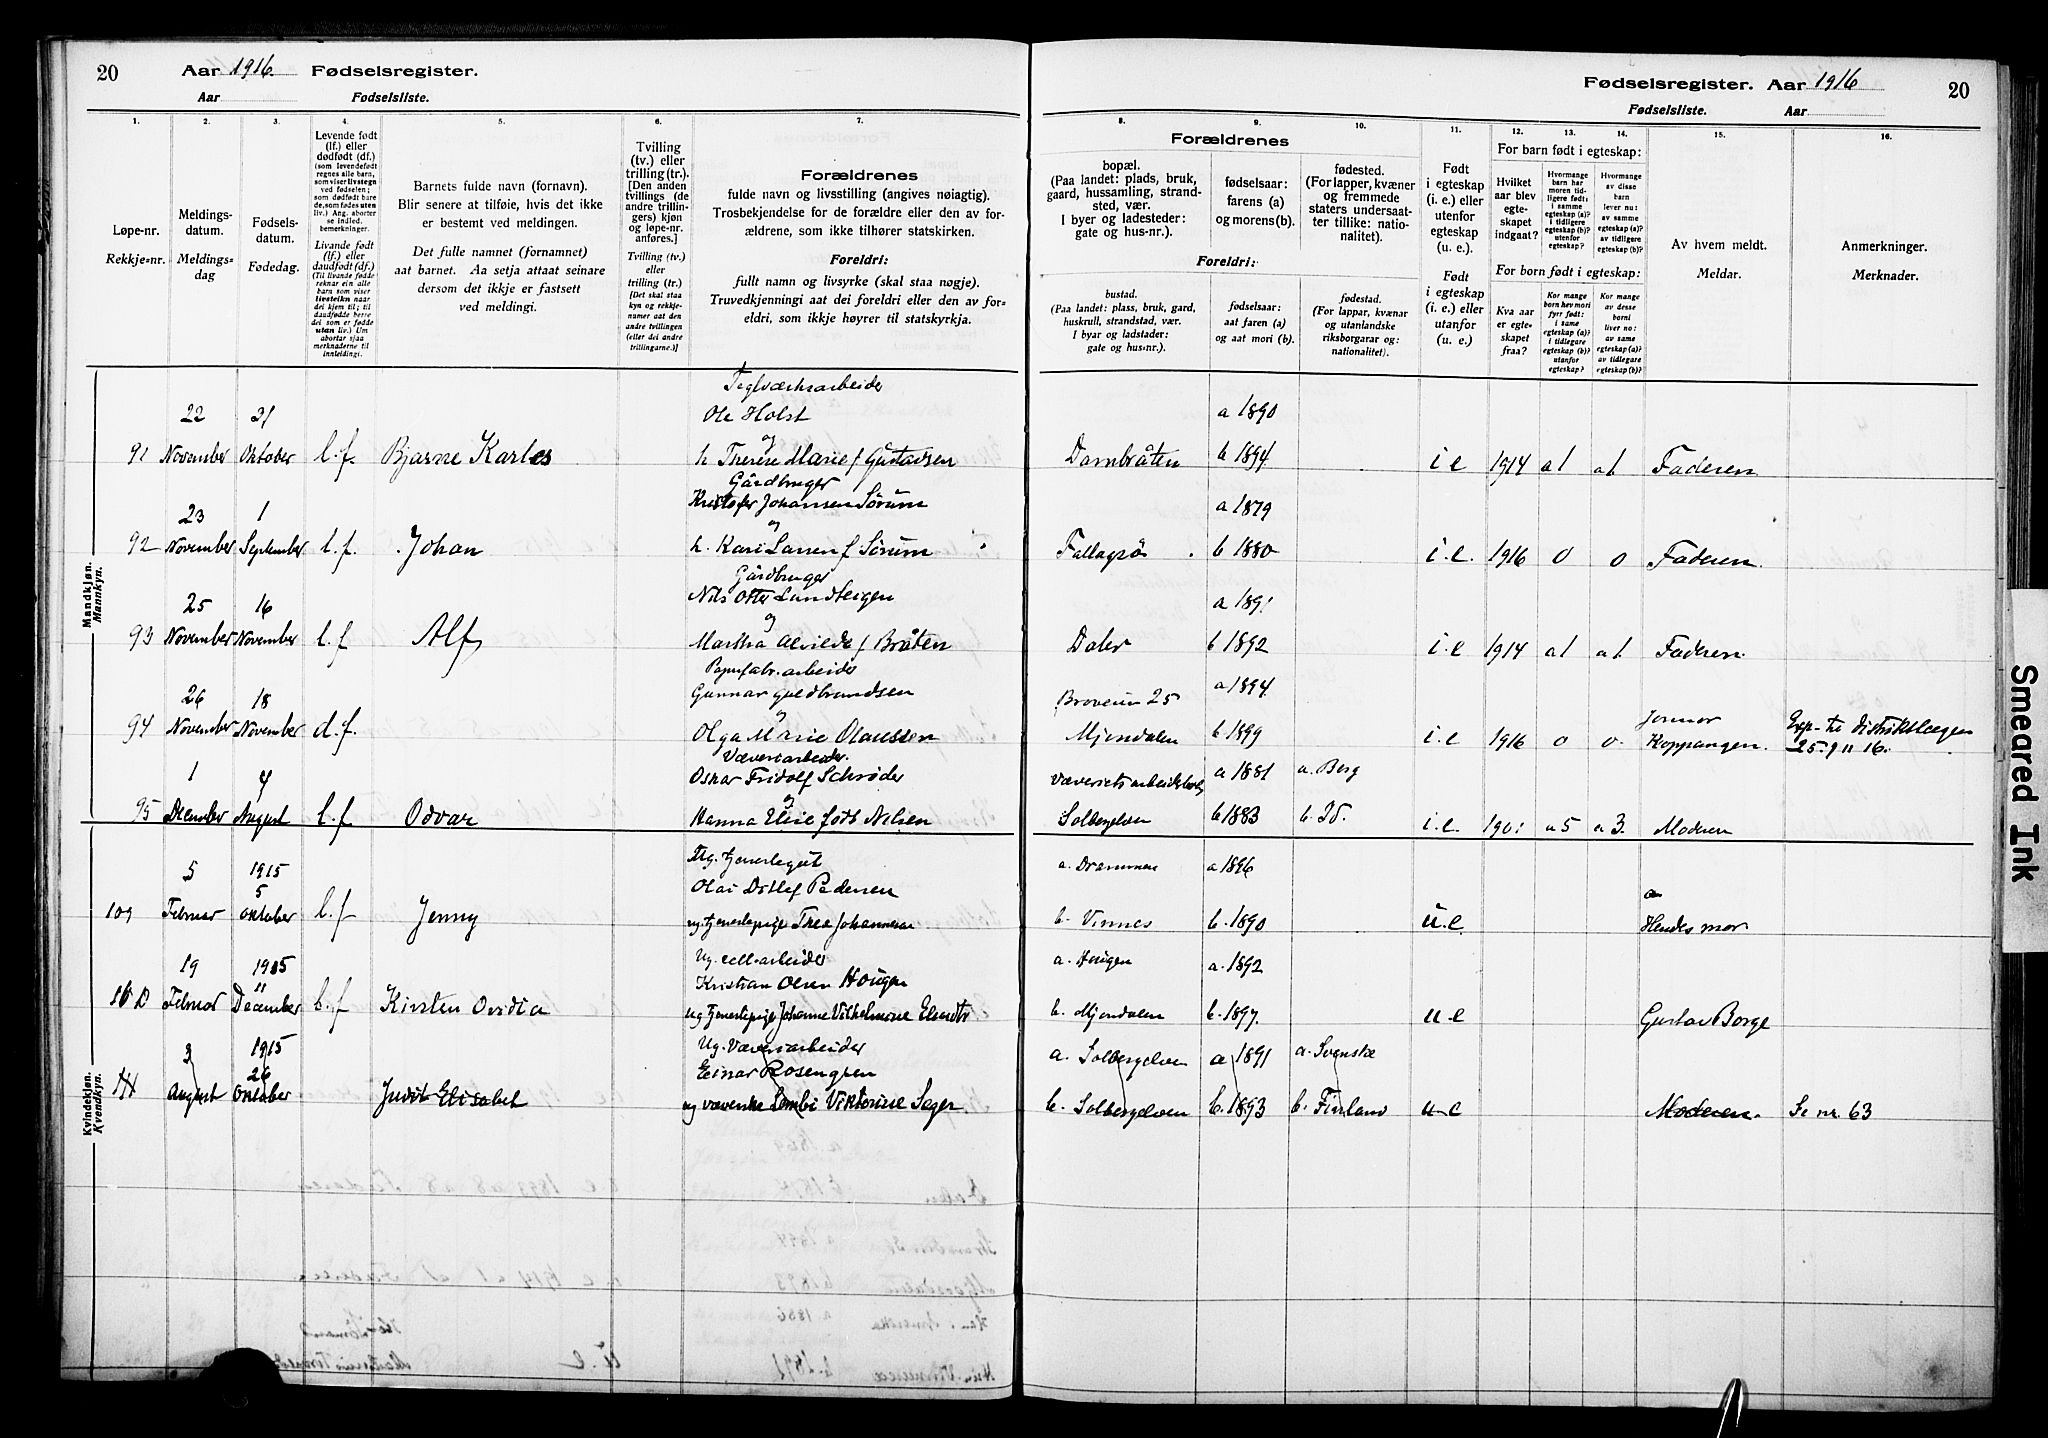 20 Aar 1916. Fødselsregister.
Aar Fødselsliste.
1. 2. 3. 4. 5. 6. 7.
Løpe-nr.
Rekkje-nr.
Meldings-
datum.
Meldings-
dag
Fødsels-
datum.
Fødedag.
Levende født
(lf.) eller
dødfødt (df.)
(som levendefødt
regnes alle barn,
som viser livstegn
ved fødselen;
som dødfødt bare
de, som fødes uten
liv.) Ang. aborter
se indled.
bemerkninger.
Livande født
(lf.) eller
daudfødt (df.)
(Til livande fødde
reknar ein alle
barn som viser
livsteikn naar
dei kjem til; til
daudfødde berre
dei som er fødde
utan liv.) Um
abortar sjaa
merknaderne til
innleidingi.
Barnets fulde navn (fornavn).
Blir senere at tilføie, hvis det ikke
er bestemt ved meldingen.
Det fulle namnet (fornamnet)
aat barnet. Aa setja attaat seinare
dersom det ikkje er fastsett
ved meldingi.
Tvilling
(tv.) eller
trilling (tr.).
[Den anden
tvillings (de
andre trillin-
gers) kjøn
og løpe-nr.
anføres.]
Tvilling (tv.)
eller
trilling (tr.)
[Det skal staa
kyn og rekkje-
numer aat den
andre tvillingen
(eller dei andre
trillingarne.)]
Forældrenes
fulde navn og livsstilling (angives nøiagtig).
Trosbekjendelse for de forældre eller den av for-
ældrene, som ikke tilhører statskirken.
Foreldri:
fullt namn og livsyrke (skal staa nøgje).
Truvedkjenningi aat dei foreldri eller den av for-
eldri, som ikkje høyrer til statskyrkja.
Mandkjøn.
Mannkyn.
Teglværksarbeider
22 31 Ole Holst
og
91 November Oktober l.f. Bjarne Karles h Therese Marie f Gustavsen
Gårdbruger
Kristofer Johansen Sørum
23 1 og
92 November September l.f. Johan h. Kari Larsen f Sørum
Gårdbruger
25 16 Nils Otter Lundteigen
og
93 November November l.f Alf Martha Alvilde f Bråten
Papirfabr.arbeider
26 18 Gunnar Guldbrandsen
og
94 November November d.f. Olga Marie Olaussen
Væveriarbeider.
1 4 Oskar Fridolf Schrøder
og
95 December August l.f Odvar Hanna Elise født Nilsen
Kvindekjøn.
Kvendkyn.
5 1915
5 Olai Ditlef Pedersen
109 Februar Oktober l.f Jenny ug. tjenestepige Thea Johannesen
19 1915 Ug. cell-arbeider
11 Kristian Olsen Hougen
110 Februar December l.f Kirsten Ovidia ug tjenestepige Johanne Vilhelmine
3 1915 Ug. Væveriarbeider
26 Einar Rosengren
111 August Oktober Judit Elisabet ug væverske Lembi Viktorine Seger
Fødselsregister. Aar 1916 20
Fødselsliste. Aar
8. 9. 10. 11. 12. 13. 14. 15. 16.
Forældrenes
bopæl.
(Paa landet: plads, bruk,
gaard, hussamling, strand-
sted, vær.
I byer og ladesteder:
gate og hus-nr.).
fødselsaar:
farens (a)
og morens (b).
fødested.
(For lapper, kvæner
og fremmede
staters undersaat-
ter tillike: natio-
nalitet).
Foreldri:
bustad.
(Paa landet: plass, bruk, gard,
huskrull, strandstad, vær.
I byar og ladstader:
gate og hus-nr.).
fødselsaar:
aat faren (a)
og aat mori (b).
fødestad.
(For lappar, kvænar
og utanlandske
riksborgarar og:
nationalitet).
Født
i egteskap
(i. e.) eller
utenfor
egteskap
(u. e.).
Født
i egteskap
(i. e.) eller
utanfor
egteskap
(u. e.)
For barn født i egteskap:
Hvilket
aar blev
egte-
skapet
indgaat?
Hvormange
barn har
moren tid-
ligere født:
i samme
egteskap (a)?
i tidligere
egteskap (b)?
utenfor
egteskap?
Hvormange
av disse
barn
lever nu:
av samme
egteskap (a)?
av tidligere
egteskap (b)?
For born født i egteskap:
Kva aar
er egte-
skapet
fraa?
Kor mange
born hev mori
fyrr født:
i same
egteskap (a)?
i tidlegare
egteskap (b)?
utanfor
egteskap?
Kor mange
av desse
borni
liver no:
av same
egteskap (a)?
av tidlegare
egteskap (b)?
Av hvem meldt.
Meldar.
Anmerkninger.
Merknader.
a 1890
Dambråten b 1894. i e 1914 a1 a1. Faderen
a 1879
b 1880 i.e. 1916 0 0 Faderen.
a 1891
Daler b 1892 i.e 1914 a1 a1. Faderen.
Broveien 25 a 1894. Jormor
Mjøndalen b 1899 i.e 1916 0 0. Koppangen. Exp. til Distriktslægen
25. 9 11 16.
a 1881 a. Berg
Solbergelven b 1883 b. Id. i.e. 1901 a5 a3. Moderen
a. Drammen a 1896
b. Vinnes b. 1890 u.e Hendes mor
a. Hougen a. 1892
b. Mjøndalen b. 1897. u e Gustav Borge
a. Solbergelven a 1891 a. Svenske
b. Solbergelven b. 1893 b. Finland u-e Moderen. Se nr. 63
Smeared Ink